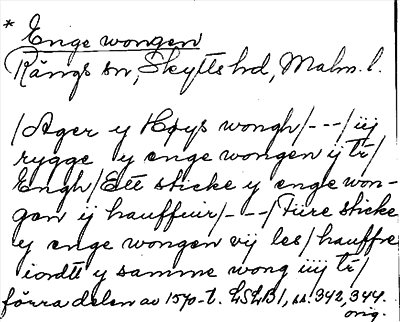 * Enge wongen
Rängs sn, Skytts hd, Malm. l.
/Ager y Høys wongh/---/iij
rygge y enge wongen ij tr/
Engh/Ett sticke y enge won-
gen ij hauffuir/---/Fiire sticke
y enge wongen vij les/hauffre
iordtt y samme wong iiij tr/
förra delen av 1570-t. LSLB1, ss. 342, 344.
orig.